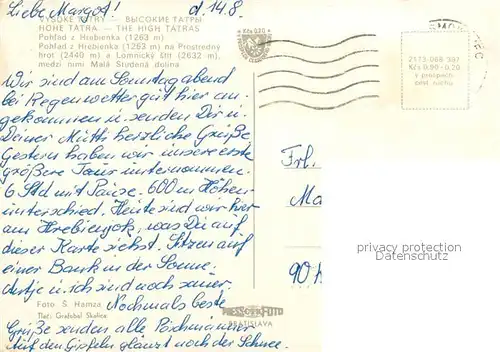 Liebe Margot! d. 14.8.
VYSOKÉ TATRY — ВЫСОКИЕ ТАТРЫ
HOHE TATRA — THE HIGH TATRAS
Pohľad z Hrebienka (1263 m)
Pohľad z Hrebienka (1263 m) na Prostredný
hrot (2440 m) a Lomnický štít (2632 m),
medzi nimi Malá Studená dolina
Wir sind am Sonntagabend
bei Regenwetter gut hier an-
gekommen u. senden Dir u.
Deiner Mutti herzliche Grüße
Gestern haben wir unsere erste
größere Tour unternommen.
6 Std mit Pause. 600 m Höhen-
unterschied. Heute sind wir hier
am Hrebienok, was Du auf
dieser Karte siehst. Sitzen auf
einer Bank in der Sonne.
Antje u. ich sind noch
Foto S. Hamza Nochmals beste
Tlač: Grafobal Skalica
Grüße senden alle
Auf den Gipfeln glänzt noch der Schnee.
PRESSFOTO
BRATISLAVA
Kčs 0,20
2173-068-587
Kčs 0,90-0,20
v predpech.
cest. ruchu
Frl.
Ma
90
privacy protection
www.oldthing.de